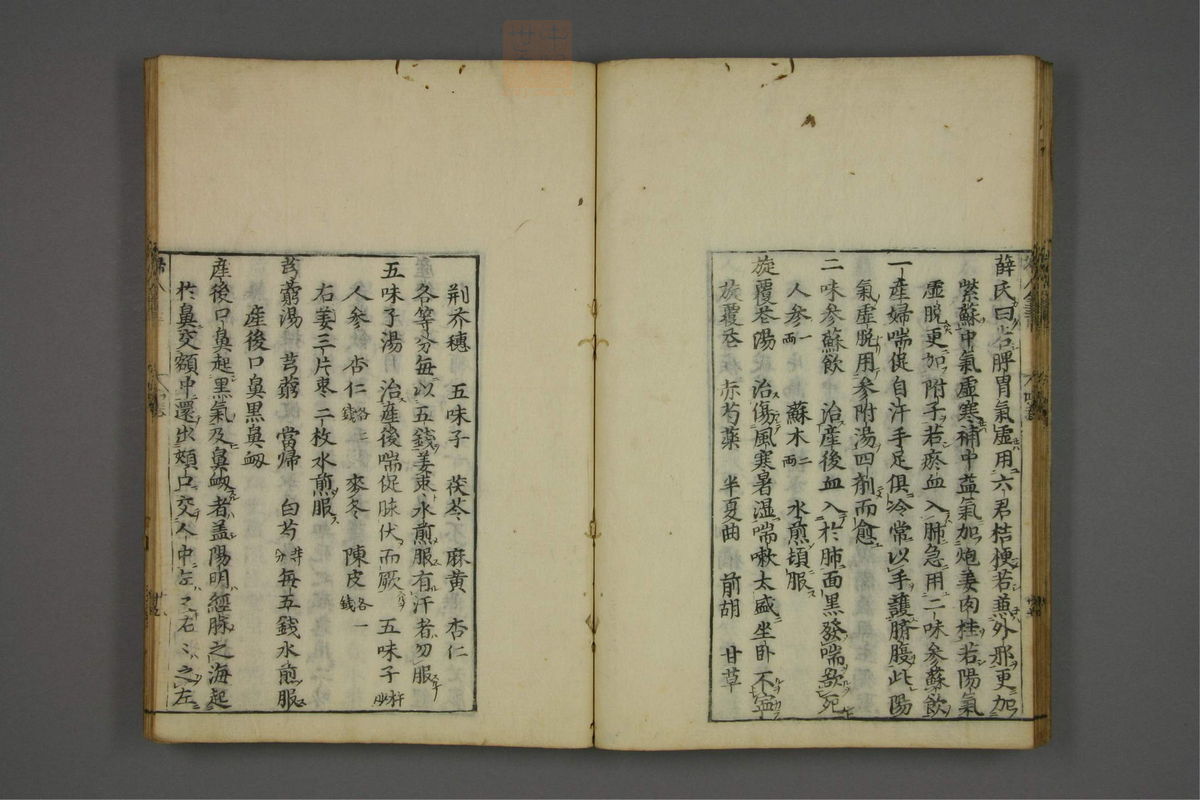 薛氏曰若脾胃氣虛用六君桔梗若兼外邪更加
紫蘇中氣虛寒補中益氣加炮姜肉桂若陽氣
虛脱更加附子若瘀血入肺急用二味參蘇飲
一産婦喘促自汗手足俱冷常以手護臍腹此陽
氣虛脱用參附湯四劑而愈
二味參蘇飲 治産後血入於肺面黑發喘欲死
人參一両 蘇木二両 水煎頓服
旋覆花湯 治傷風寒暑湿喘嗽太盛坐卧不寧
旋覆花 赤芍藥 半夏曲 前胡 甘草
荆芥穗 五味子 茯苓 麻黄 杏仁
各等分毎以五錢姜棗水煎服有汗者勿服
五味子湯 治産後喘促脉伏而厥 五味子杵炒
人參 杏仁各二錢 麥冬 陳皮各一錢
右姜三片棗二枚水煎服
芎藭湯 芎藭 當歸 白芍等分毎五錢水煎服
産後口鼻黒鼻衂
産後口鼻起黒氣及鼻衂者盖陽明經脉之海起
於鼻交頞中還出頰口交人中左之右右之左